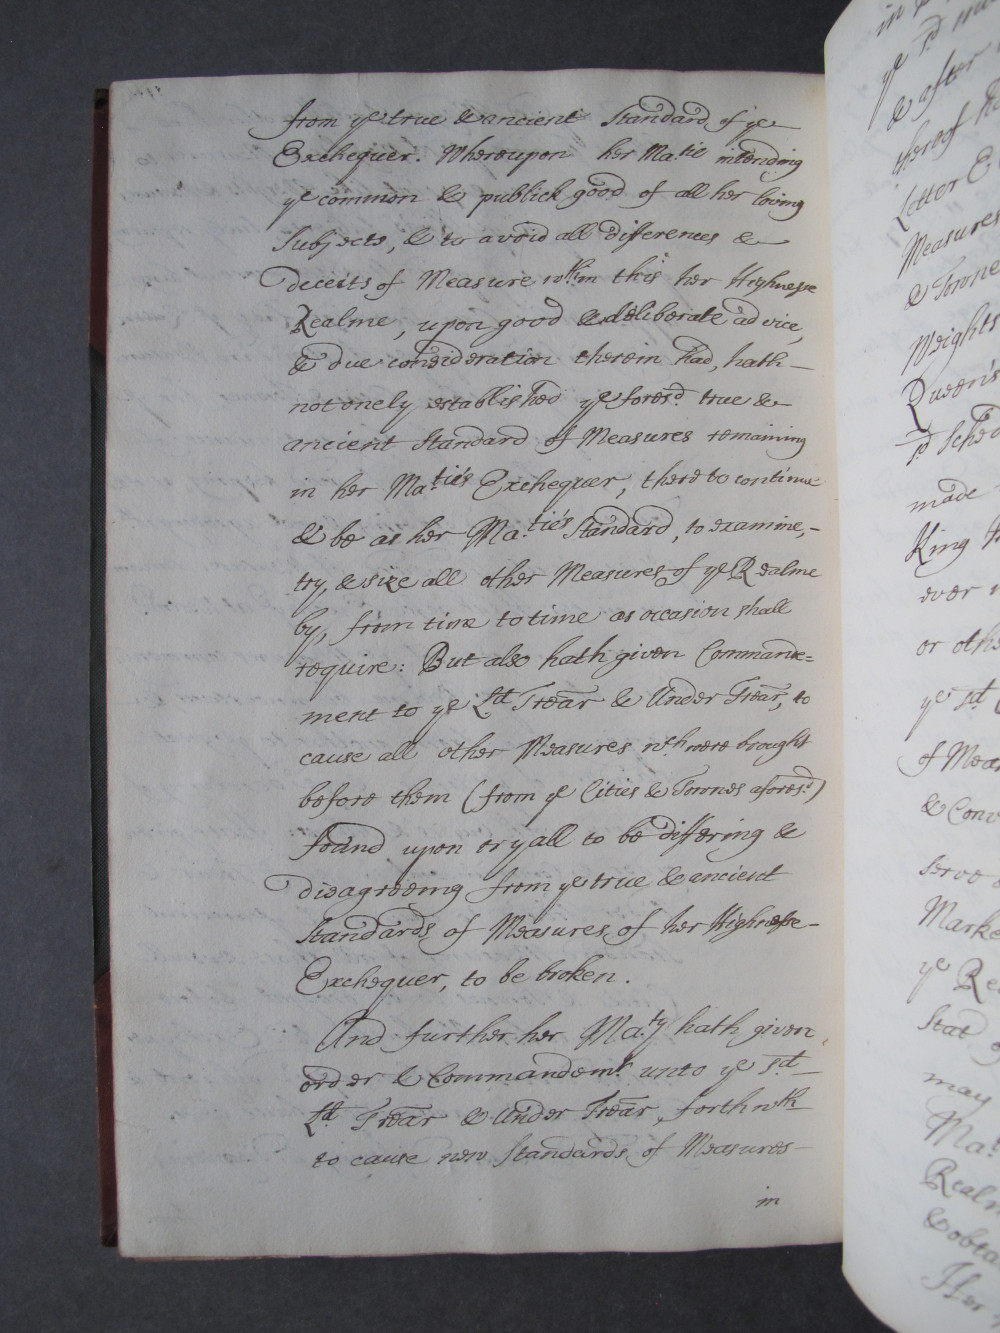 from ye true & ancient Standard of ye
Exchequer. Whereupon her Ma.tie intending
ye common & publick good of all her loving
Subjects, & to avoid all differences &
deceits of Measure wthin this her Highnesse
Realme, upon good & deliberate advice,
& due consideration therein had, hath
not onely established ye foresd. true &
ancient Standard of Measures remaining
in her Ma.tie's Exchequer, there to continue
& be as her Ma.tie's Standard, to examine,
try, & size all other Measures of ye Realme
by, from time to time as occasion shall
require: But also hath given Commande=
ment to ye Ld Trear & Under Trear, to
cause all other Measures wch were brought
before them (from ye Cities & Townes aforesd.)
found upon tryall to be differing &
disagreeing from ye true & ancient
Standards of Measures of her Highnesse
Exchequer, to be broken.
And further her Ma.ty hath given
order & Commandemt unto ye sd
Ld Trear & Under Trear, forthwth
to cause new Standards of Measures
in
ye sd
& after
thereof
Letter E
Measures
& Towne
Weights
Queen's
sd Sched
made
King
ever
or oth
ye sd
of Mea
& Conv
serve
Marke
ye Re
Stat
may
Ma.
Realm
& obta
Her